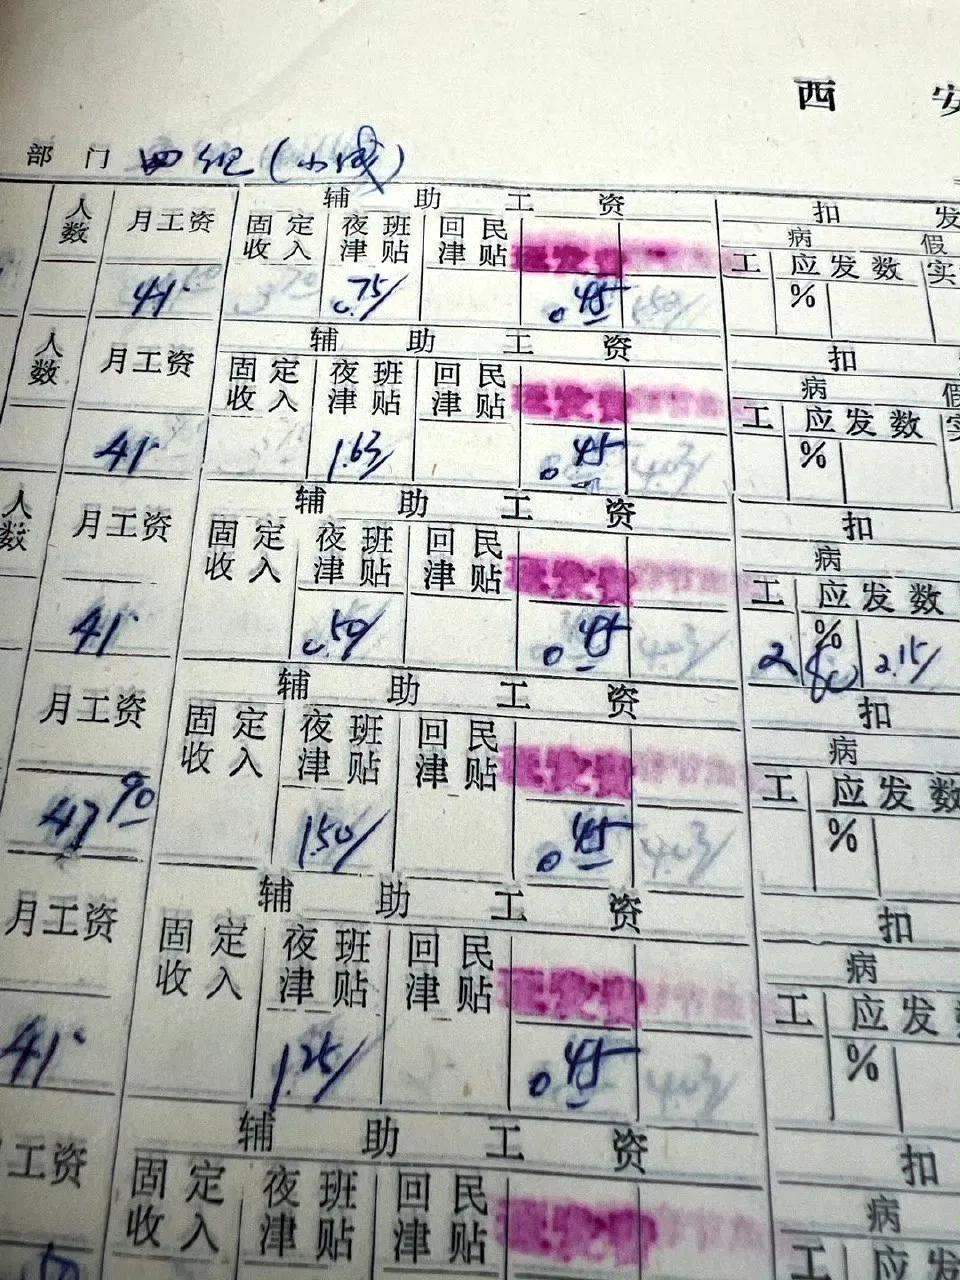 西 安
部 门 四组(小成)
人数 月工资 辅 助 工 资 扣 发
固定收入 夜班津贴 回民津贴 病 假
工 应发数 实
41. 0.75/ 0.45 %
人数 月工资 辅 助 工 资 扣
固定收入 夜班津贴 回民津贴 病 假
工 应发数 实
41. 1.63/ 0.45 4.03/ %
人数 月工资 辅 助 工 资 扣
固定收入 夜班津贴 回民津贴 病
工 应发数
41. 0.50/ 0.45 4.03/ 2 % 2.15/
月工资 辅 助 工 资 扣
固定收入 夜班津贴 回民津贴 病
工 应发数
47.90 1.50/ 0.45 4.03/ %
月工资 辅 助 工 资 扣
固定收入 夜班津贴 回民津贴 病
工 应发数
41. 1.25/ 0.45 4.03/ %
工资 辅 助 工 资 扣
固定收入 夜班津贴 回民津贴 病
工 应发